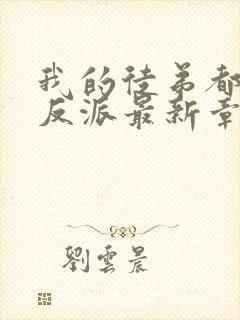 我的徒弟都
反派最新章
劉雲晨